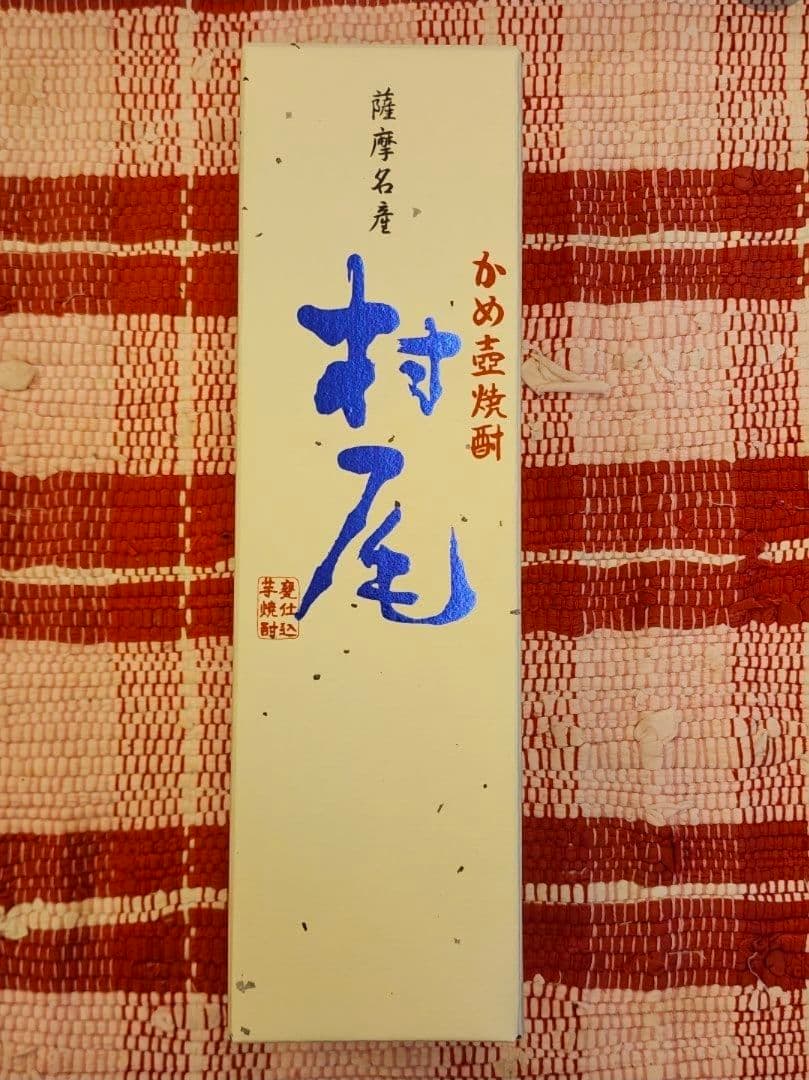 薩摩名産
かめ壺焼酎
村尾
甕仕込
芋焼酎